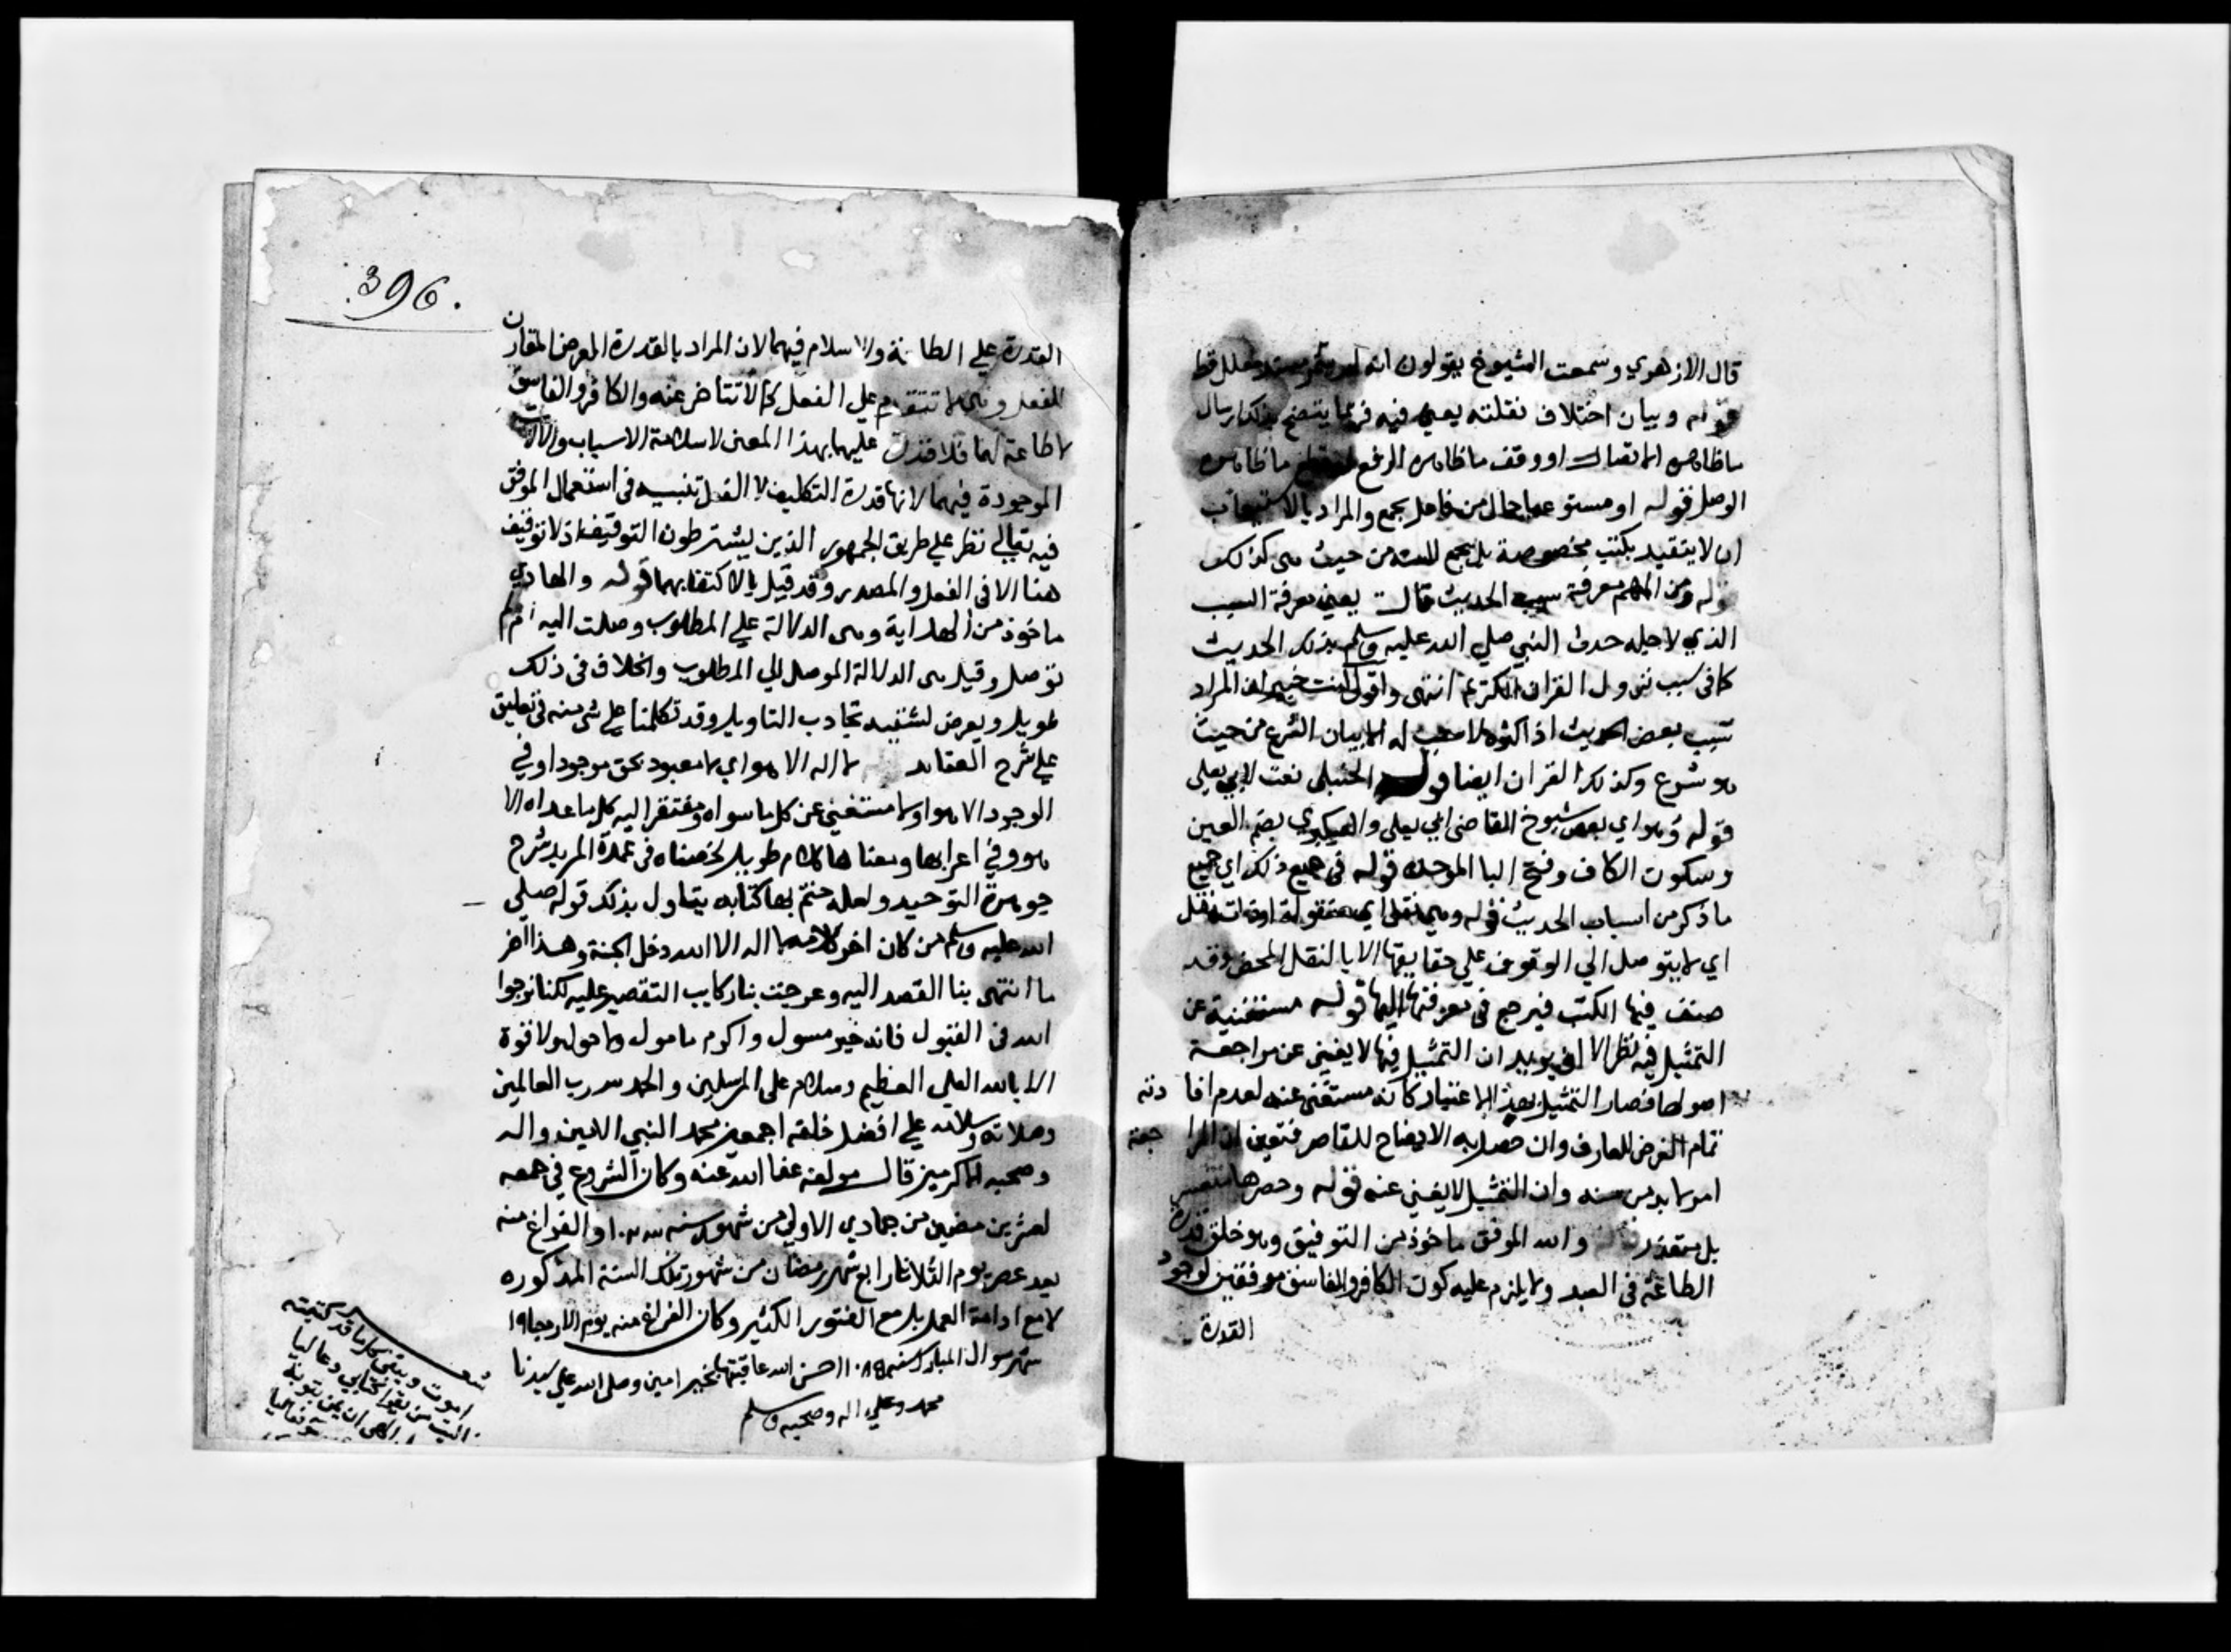 قال الازهري وسمعت الشيوخ يقولون انه لم مسند معلل قط
قوله وبيان اختلاف نقلته يعني فيه فربما يتضح بذلك ارسال
ما ظاهره الاتصال او وقف ما ظاهره الرفع ما ظاهره
الوصل فقوله او مستوعبا حال من فاعل يجمع والمراد بالاستيعاب
ان لا يتقيد بكتب مخصوصة بل يجمع للسنة من حيث هي كذلك
قوله ومن المهم معرفة سبب الحديث قال يعني معرفة السبب
الذي لاجله حدث النبي صلي الله عليه وسلم بذلك الحديث
كما في سبب نزول القران الكريم انتهى واقول انت خبير ان المراد
سبب بعض الحديث اذ اكثره لا سبب له الا بيان الشرع من حيث
هو شرع وكذلك القران ايضا قوله الحنبلي نعت لابي يعلي
قوله وهو اي بعض شيوخ القاضي ابي يعلي والعكبري بضم العين
وسكون الكاف وفتح البا الموحدة قوله في جميع ذلك اي جميع
ما ذكر من اسباب الحديث قوله وهي نقل اي منقولة او ذات نقل
اي لا يتوصل الي الوقوف علي حقايقها الا بالنقل المحض وقد
صنف فيها الكتب فيرجع في معرفتها اليها قوله مستغنية عن
التمثيل فيه نظر الا ان يريد ان التمثيل فيها لا يغني عن مراجعة
اصولها فصار التمثيل بهذا الاعتبار كانه مستغنى عنه لعدم افادته
تمام الغرض للعارف وان حصل به الايضاح للقاصر فتعين ان المراجعة
امر لا بد من سنه وان التمثيل لا يغني عنه قوله وحصرها متعسر
بل متعذر والله الموفق ماخوذ من التوفيق وهو خلق قدرة
الطاعة في العبد ولا يلزم عليه كون الكافر والفاسق موفقين لوجود
القدرة
396.
القدرة علي الطاعة والاسلام فيهما لان المراد بالقدرة العرض المقارن
للفعل وهي لا تتقدم علي الفعل كما لا تتاخر عنه والكافر والفاسق
لا طاعة لهما فلا قدرة عليهما بهذا المعني لا سلامة الاسباب والالات
الموجودة فيهما لانها قدرة التكليف لا الفعل تنبيه في استعمال الموفق
فيه تعالي نظر علي طريق الجمهور الذين يشترطون التوقيف اذ لا توقيف
هنا الا في الفعل والمصدر وقد قيل بالاكتفا بهما قوله والهادي
ماخوذ من الهداية وهي الدلالة علي المطلوب وصلت اليه ام لم
توصل وقيل هي الدلالة الموصل الي المطلوب والخلاف في ذلك
طويل ويعرض لشنبه تجاذب التاويل وقد تكلمنا علي شي منه في تعليق
علي شرح العقايد لا اله الا هو اي لا معبود بحق موجود او في
الوجود الا هو او لا مستغني عن كل ما سواه ومفتقر اليه كل ما عداه الا
هو وفي اعرابها ومعناها كلام طويل لخصناه في عمدة المريد شرح
جوهرة التوحيد ولعله ختم بها كتابه تفاول بذلك قوله صلي
الله عليه وسلم من كان اخر كلامه لا اله الا الله دخل الجنة وهذا اخر
ما انتهى بنا القصد اليه وعرجت بنا ركايب التقصير عليه لكنا نرجوا
الله في القبول فانه خير مسول واكرم مامول ولا حول ولا قوة
الا بالله العلي العظيم وسلام على المرسلين والحمد لله رب العالمين
وصلاته وسلامه علي افضل خلقه اجمعين محمد النبي الامين واله
وصحبه الاكرمين قال مولفه عفا الله عنه وكان الشروع في جمعه
لعشرين مضين من جمادي الاولي من شهور سنه ١٠٢٣ والفراغ منه
بعد عصر يوم الثلاثا رابع شهر رمضان من شهور تلك السنة المذكوره
لا مع ادامة العمل بل مع الفتور الكثير وكان الفراغ منه يوم الاربعا ١٩
شهر شوال المبارك سنه ١٠٨٤ احسن الله عاقبتها بخير امين وصلى الله علي سيدنا
محمد وعلي اله وصحبه وسلم
شعر
اموت ويبقى كل ما قد كتبته
فيا ليت من يقرا كتابي دعا ليا
لعل الهي ان يمن بتوبة